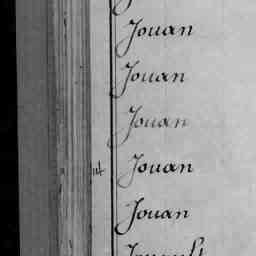 Jouan
Jouan
Jouan
Jouan
Jouan